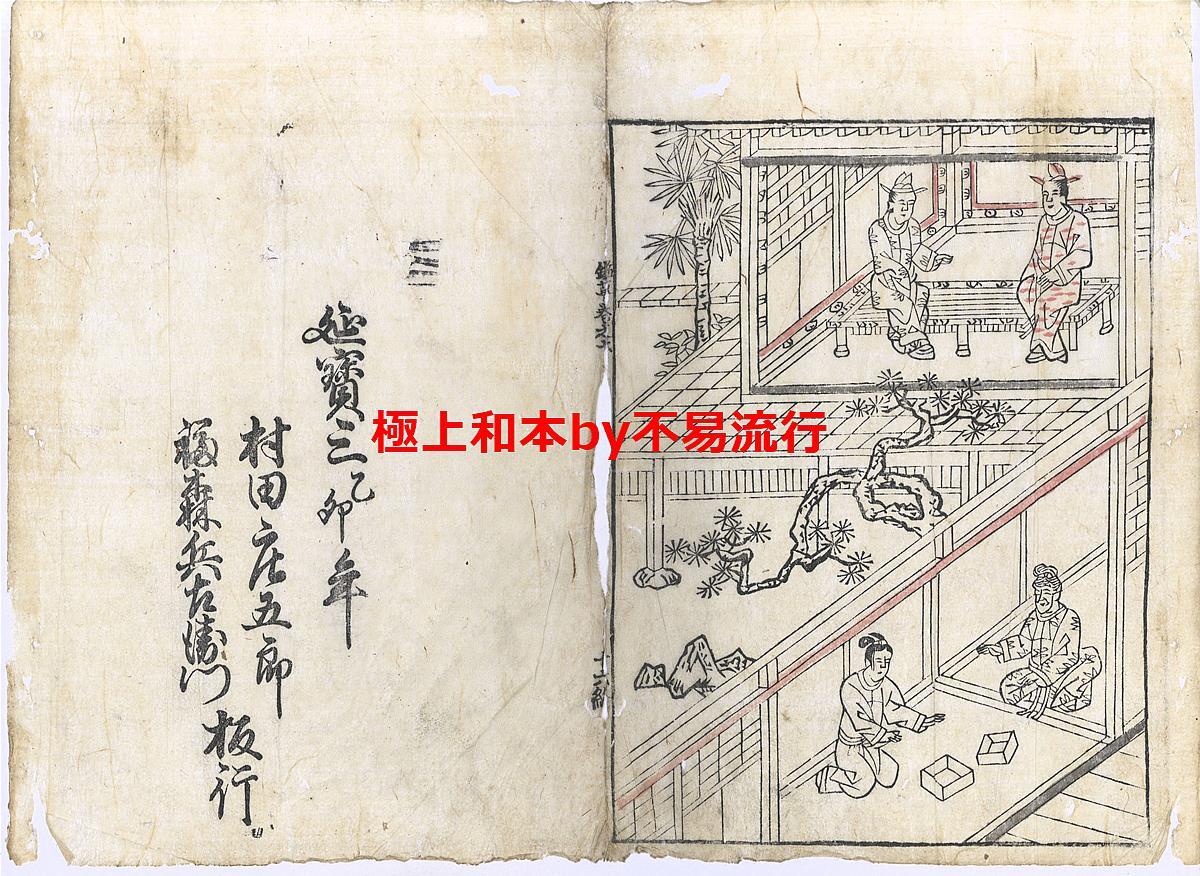 鑑草巻之六
十六終
延寶三乙卯年
村田庄五郎
福森兵左衛門
板行
極上和本by不易流行